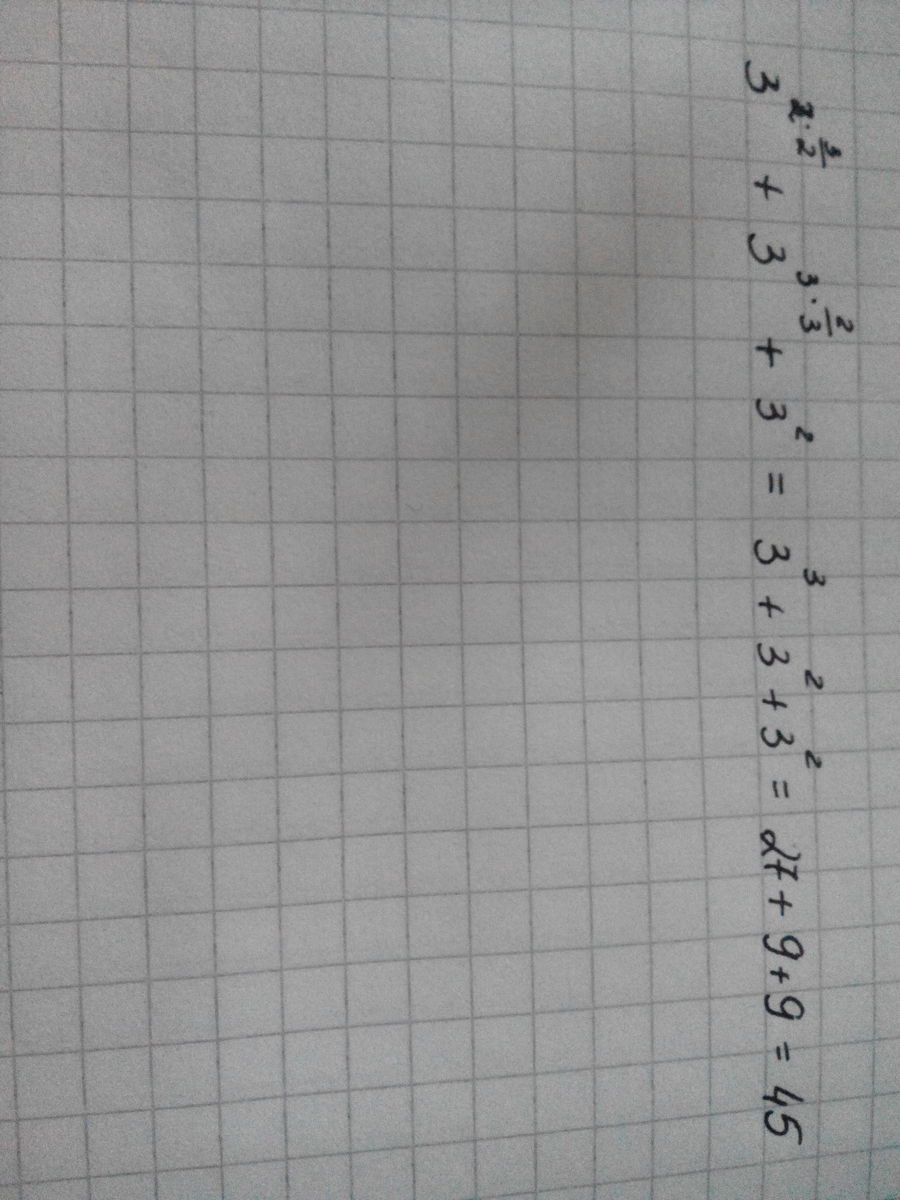 3^{2·\frac{3}{2}} + 3^{3·\frac{2}{3}} + 3^2 = 3^3 + 3^2 + 3^2 = 27 + 9 + 9 = 45